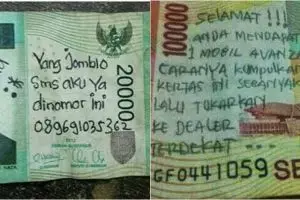 Yang Jomblo
Sms aku Ya
dinomor ini
089691035362
20000
100000
SELAMAT !!!
ANDA MENDAPAT
1 MOBIL AVANZA
CARANYA KUMPULKAN
KERTAS INI SEBANYAK
LALU TUKARKAN
KE DEALER
TERDEKAT...
GF0441059